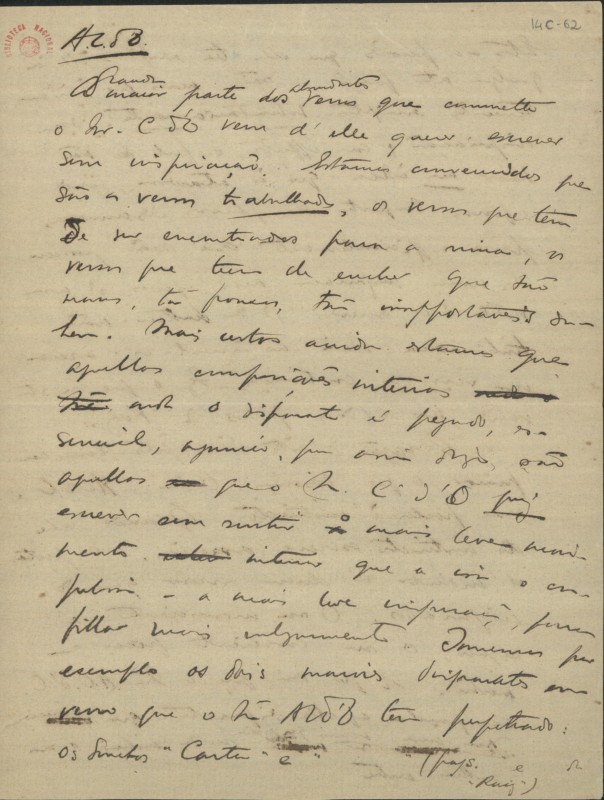 14C-62
BIBLIOTECA NACIONAL
A. C. d'O.
A maior parte dos versos que commette
o Sr. C d'O vem d'elle querer escrever
sem inspiração. Estamos convencidos que
são os versos trabalhados, os versos que tem
de ser encontrados para a rima, os
versos que teem de encher que são
maus, tão, tão insupportaveis
Mais certos ainda estamos que
aquellas composições inteiras
onde o disparate é pegado,
por assim dizer, são
aquellas que o Sr. C. d'O quiz
escrever sem sentir o mais leve movi-
mento interior que a isso o
- a mais leve inspiração, para
fallar mais vulgarmente. Tomemos por
exemplo os dois maiores disparates em
verso que o Sr A C d'O tem perpetrado:
os Sonetos "Carta" e
(pags. e de
"Raiz")